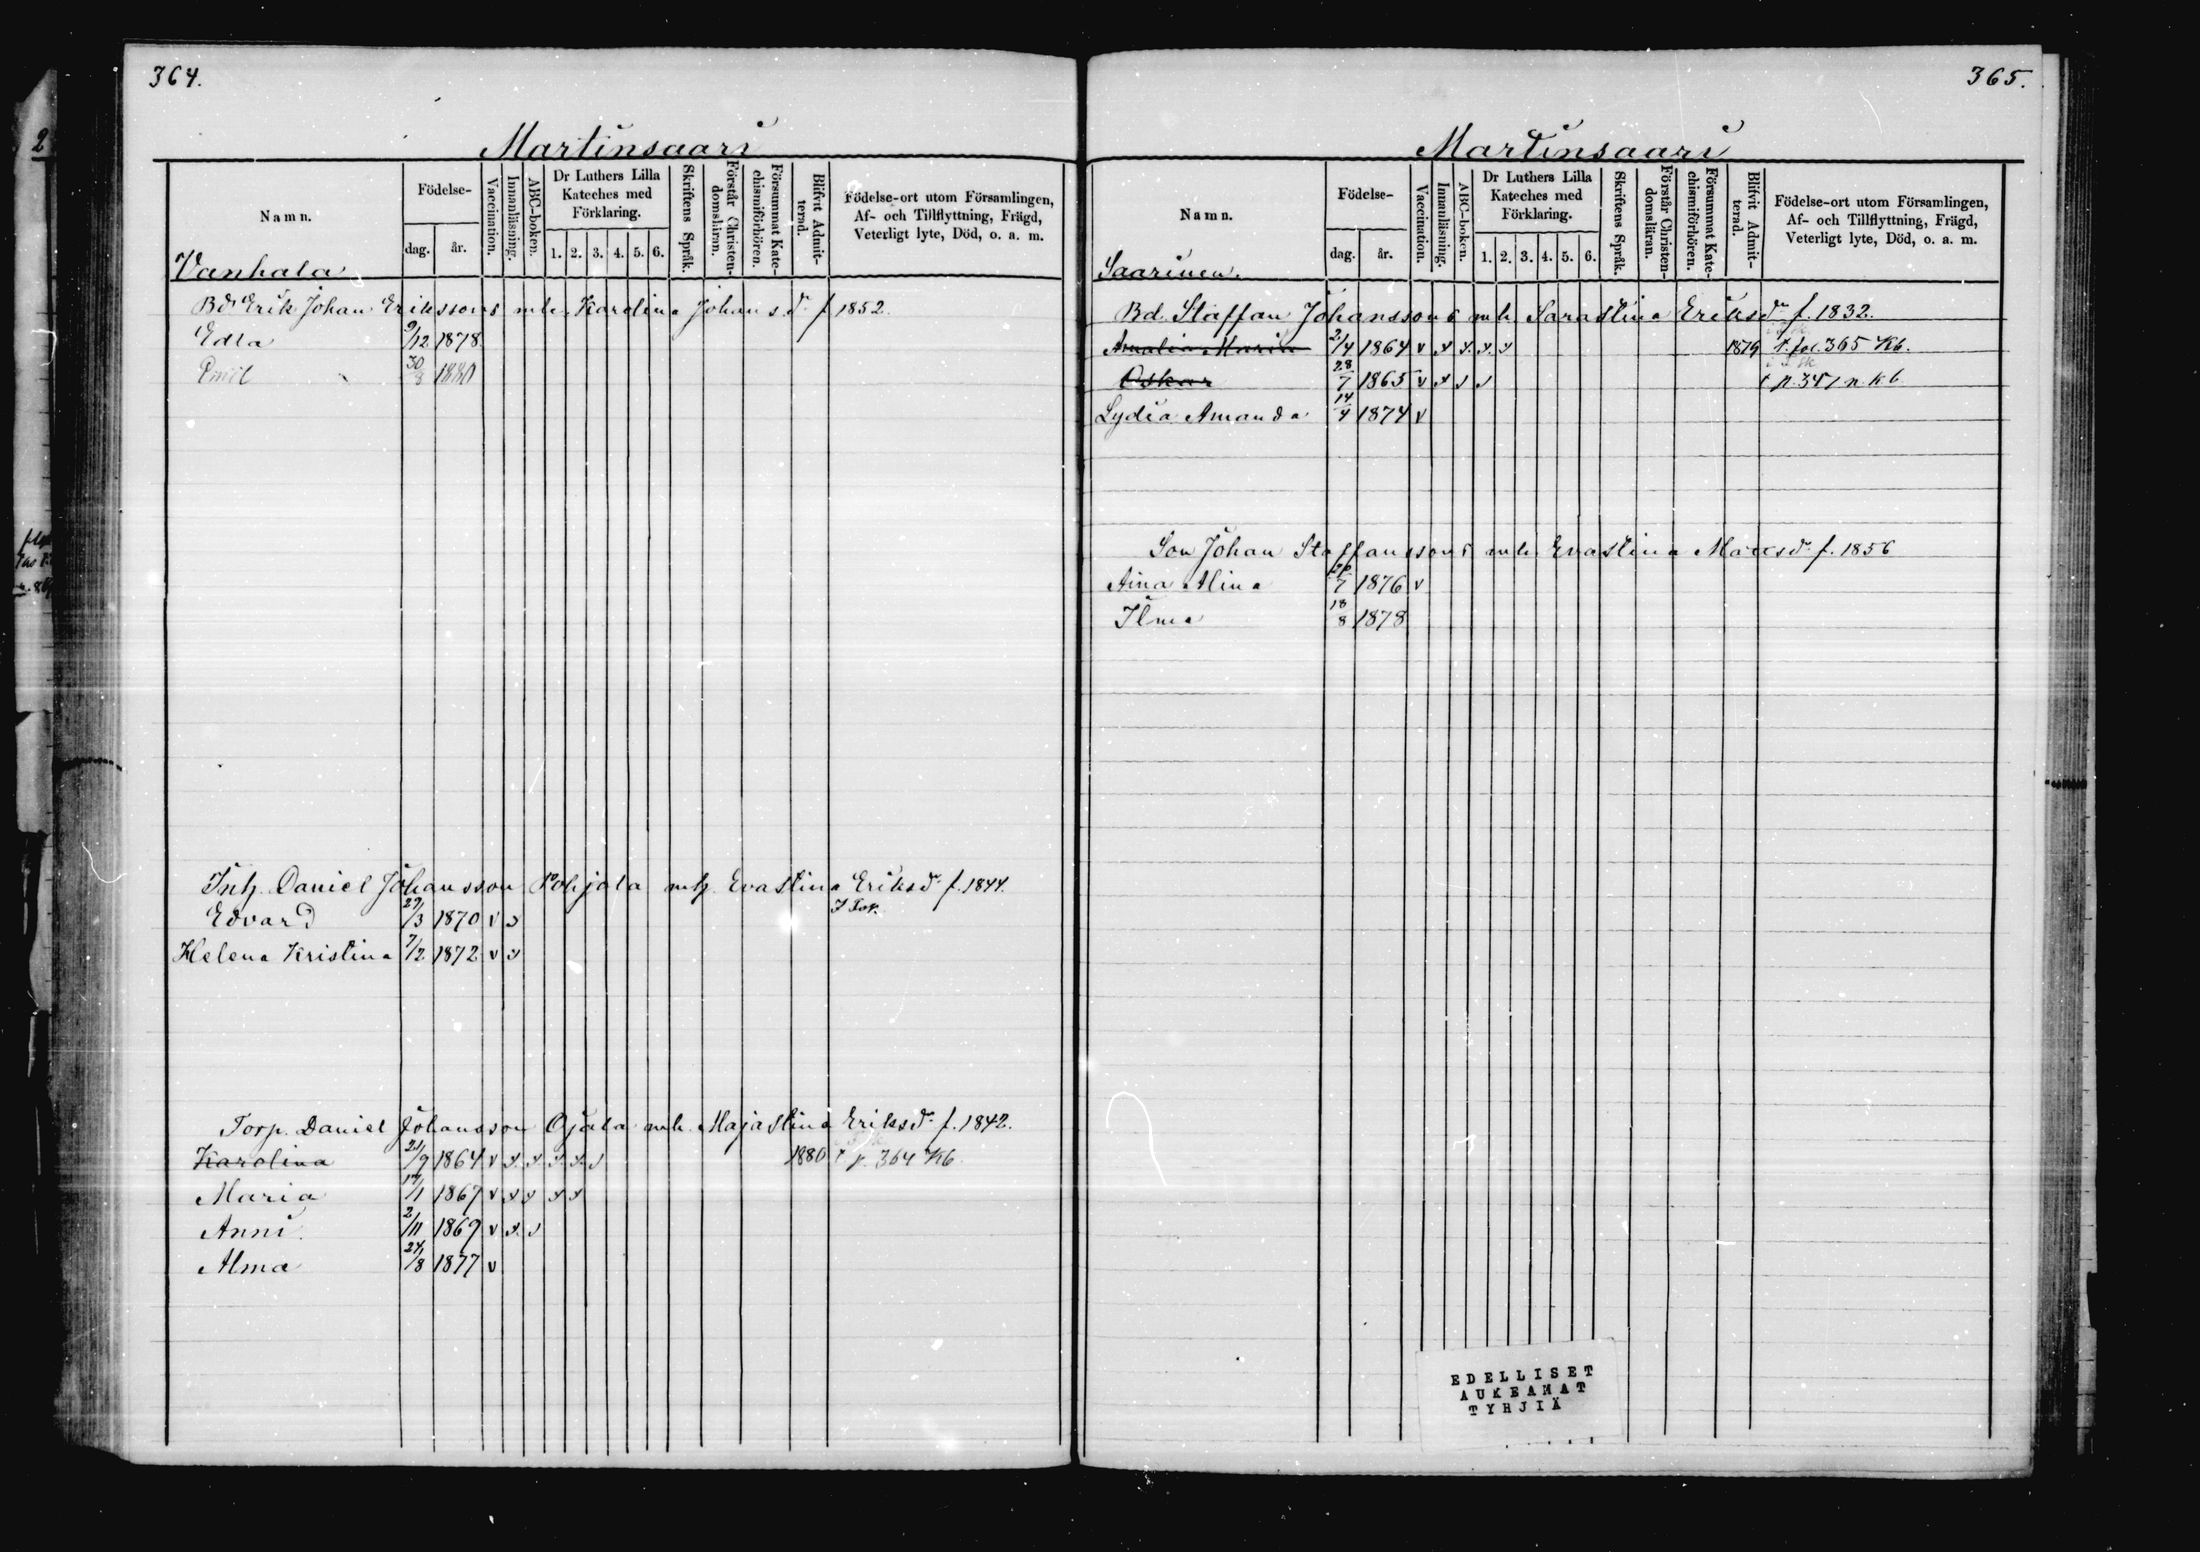 364.
Martinsaari
Namn.
Födelse-
dag.
år.
Vaccination.
Innanläsning.
ABC-boken.
Dr Luthers Lilla
Kateches med
Förklaring.
1. 2. 3. 4. 5. 6.
Skriftens Språk.
Förstår Christen-
domsläran.
Försummat Kate-
chismiförhören.
Blifvit Admit-
terad.
Födelse-ort utom Församlingen,
Af- och Tillflyttning, Frägd,
Veterligt lyte, Död, o. a. m.
Vanhala
Bd Erik Johan Erikssons mh. Karolina Johansdr f 1852.
Edla 9/12 1878
Emil 30/8 1880
Inh. Daniel Johansson Pohjola mh. Evastina Eriksdr f. 1844.
Edvard 29/3 1870 v
Helena Kristina 7/2 1872 v
Torp. Daniel Johansson Ojala mh. Majastina Eriksdr f. 1842.
Karolina 21/9 1864 v 1880 p. 364 Kb.
Maria 14/1 1867 v
Anni 2/11 1869 v
Alma 24/8 1877 v
365.
Martinsaari
Namn.
Födelse-
dag.
år.
Vaccination.
Innanläsning.
ABC-boken.
Dr Luthers Lilla
Kateches med
Förklaring.
1. 2. 3. 4. 5. 6.
Skriftens Språk.
Förstår Christen-
domsläran.
Försummat Kate-
chismiförhören.
Blifvit Admit-
terad.
Födelse-ort utom Församlingen,
Af- och Tillflyttning, Frägd,
Veterligt lyte, Död, o. a. m.
Saarinen.
Bd. Staffan Johanssons mh. Sarastina Eriksdr f. 1832.
Amalia Maria 2/4 1864 v 1879 t. fol. 365 Kb.
Oskar 28/7 1865 v t p. 347 n. kb
Lydia Amanda 14/4 1874 v
Son Johan Staffanssons mh. Evastina Matsdr f. 1856
Aina Alina 1876 v
Ilma 18/8 1878
EDELLISET
AUKEAMAT
TYHJIÄ